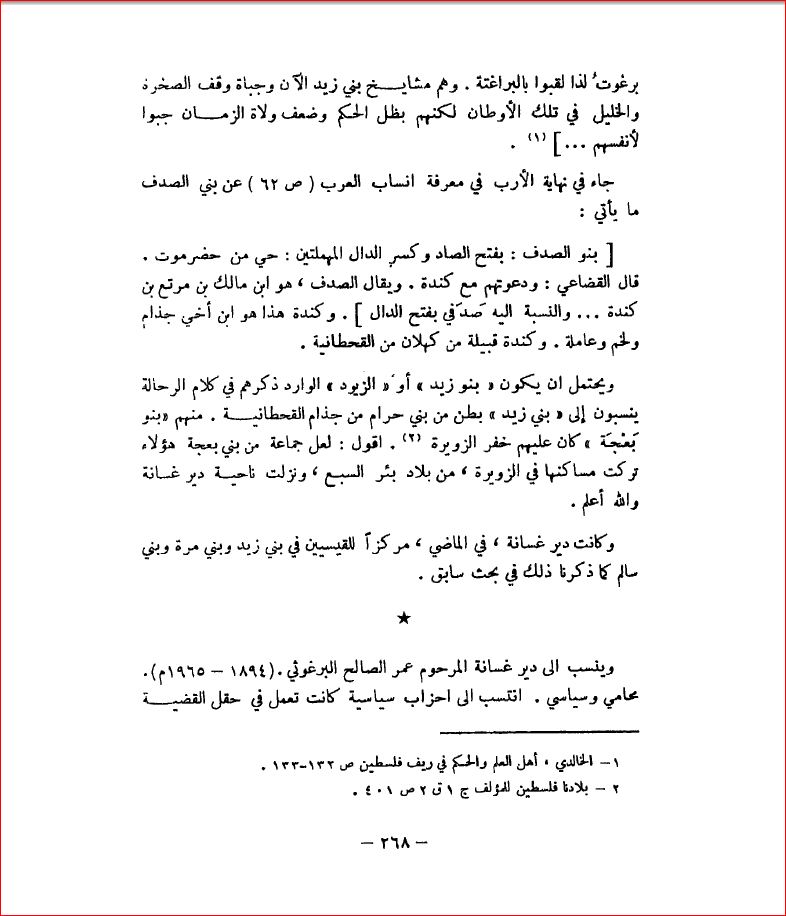 برغوتُ لذا لقبوا بالبراغتة . وهم مشايـــخ بني زيد الآن وجباة وقف الصخرة
والخليل في تلك الأوطان لكنهم بظل الحكم وضعف ولاة الزمـــان جبوا
لأنفسهم ... ] (١) .
جاء في نهاية الأرب في معرفة انساب العرب ( ص ٦٢ ) عن بني الصدف
ما يأتي :
[ بنو الصدف : بفتح الصاد وكسر الدال المهملتين : حي من حضرموت .
قال القضاعي : ودعوتهم مع كندة . ويقال الصدف ، هو ابن مالك بن مرتع بن
كندة ... والنسبة اليه صَدَفي بفتح الدال ] . وكندة هذا هو ابن أخي جذام
ولخم وعاملة . وكندة قبيلة من كهلان من القحطانية .
ويحتمل ان يكون « بنو زيد » أو « الزيود » الوارد ذكرهم في كلام الرحالة
ينسبون إلى « بني زيد » بطن من بني حرام من جذام القحطانيـــة . منهم «بنو
بَعْجَة » كان عليهم خفر الزويرة (٢) . اقول : لعل جماعة من بني بعجة هؤلاء
تركت مساكنها في الزويرة ، من بلاد بئر السبع ، ونزلت ناحيـة دير غسانة
والله أعلم .
وكانت دير غسانة ، في الماضي ، مركزاً للقيسيين في بني زيد وبني مرة وبني
سالم كما ذكرنا ذلك في بحث سابق .
★
وينسب الى دير غسانة المرحوم عمر الصالح البرغوثي . (١٨٩٤ – ١٩٦٥م) .
محامي وسياسي . انتسب الى احزاب سياسية كانت تعمل في حقل القضيـــة
١ – الخالدي ، أهل العلم والحكم في ريف فلسطين ص ١٣٢-١٣٣ .
٢ – بلادنا فلسطين للمؤلف ج ١ ق ٢ ص ٤٠١ .
– ٢٦٨ –